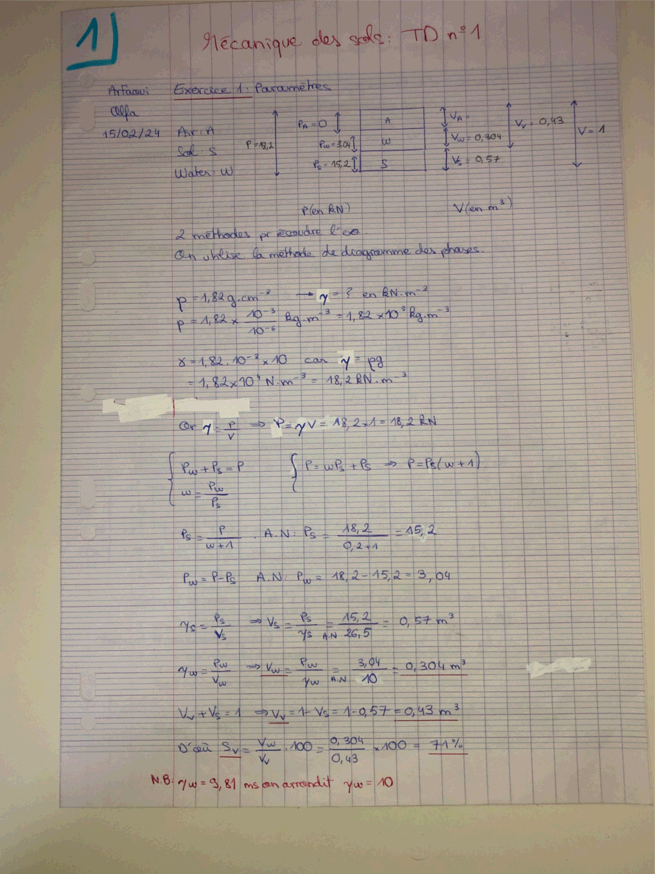 1)
Mécanique des sols: TD n°1
Arfaoui
Olfa
15/02/24
Exercice 1: Paramètres
Air: A
Sol: S
Water: W
P=18,2
PA=0
Pw=3,04
Ps=15,2
A
W
S
VA=
Vw=0,304
Vs=0,57
Vv=0,43
V=1
P(en kN)
V(en m³)
2 méthodes pr résoudre l'exo
On utilise la méthode de diagramme des phases.
ρ=1,82 g.cm⁻³ → γ=? en kN.m⁻³
ρ=1,82 × 10⁻³/10⁻⁶ kg.m⁻³ = 1,82 ×10³ kg.m⁻³
γ=1,82.10⁻³×10 car γ=ρg
= 1,82×10⁴ N.m⁻³ = 18,2 kN.m⁻³
Or γ=P/V ⇒ P=γV= 18,2×1=18,2 kN
{ Pw+Ps=P
w=Pw/Ps
{ P=wPs+Ps ⇒ P=Ps(w+1)
Ps=P/(w+1) . A.N: Ps=18,2/(0,2+1)=15,2
Pw=P-Ps A.N: Pw=18,2-15,2=3,04
γs=Ps/Vs ⇒ Vs=Ps/γs = A.N 15,2/26,5 = 0,57 m³
γw=Pw/Vw ⇒ Vw=Pw/γw = A.N 3,04/10 = 0,304 m³
Vv+Vs=1 ⇒ Vv=1-Vs=1-0,57=0,43 m³
D'où Sv=Vw/Vv .100=0,304/0,43 ×100= 71%
N.B: γw=9,81 ms on arrondit γw=10